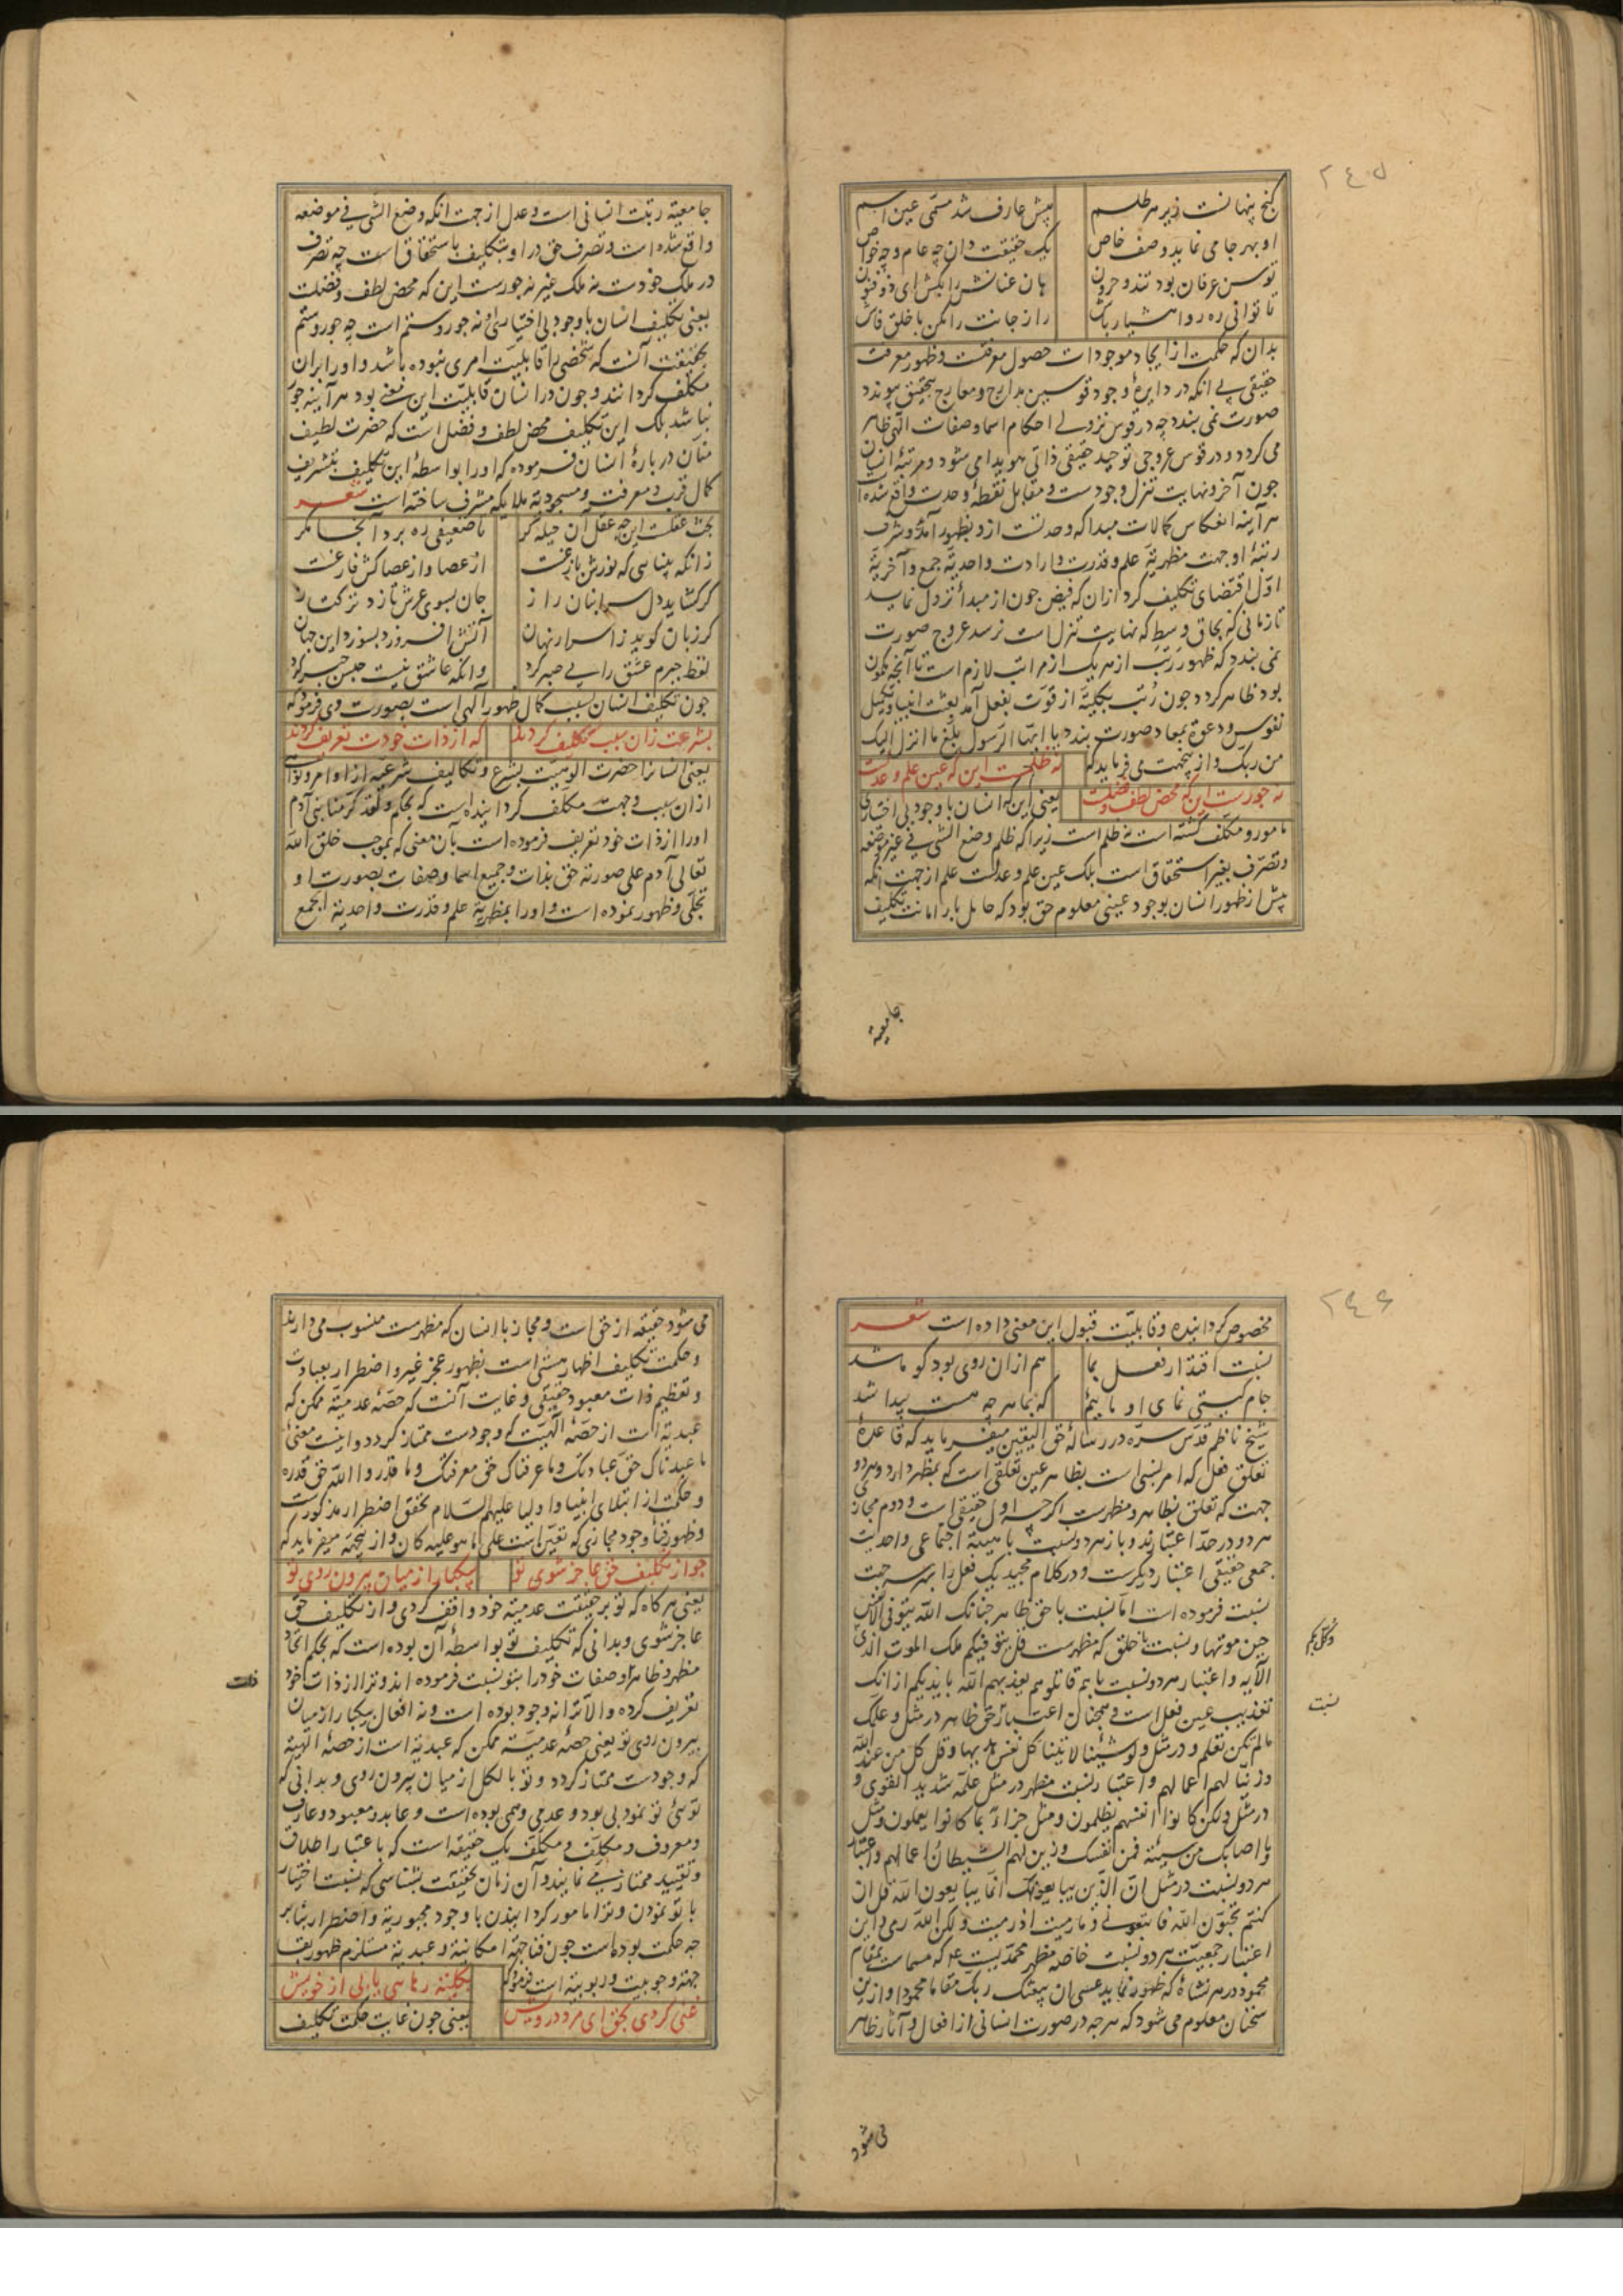 ٢٤٥
گنج پنهانست زیر هر طلسم
پیش عارف شد مسمی عین اسم
او بهر جا می نماید وصف خاص
یک حقیقت دان چه عام و چه خواص
توسن عرفان بود تند و حرون
هان عنانش را بکش ای ذوفنون
تا توانی ره رو هشیار باش
راز جانت را مکن با خلق فاش
بدان که حکمت از ایجاد موجودات حصول معرفت و ظهور معرفت
حقیقی بی انکه در دایرهٔ وجود قوسین مدارج و معارج بتحقیق پیوندد
صورت نمی بندد چه در قوس نزولی احکام اسما و صفات الهی ظاهر
می کردد و در قوس عروجی توحید حقیقی ذاتی هویدا می شود و مرتبهٔ انسان
چون آخر و نهایت تنزل وجودست و مقابل نقطهٔ وحدت واقع شده
هر آینه انعکاس کمالات مبدا که وحدتست ازو بظهور آمد و شرف
رتبهٔ او جهت مظهریة علم و قدرت و ارادت و احدیة جمع و آخریة
اول اقتضای تکلیف کرد از ان که فیض چون از مبدا نزول نماید
تا زمانی که بحاق وسط که نهایت تنزل است نرسد عروج صورت
نمی بندد که ظهور رتب از هر یک از مراتب لازم است تا آنچه مکون
بود ظاهر کردد چون رتب بکلیة از قوت بفعل آمد بعثت انبیا و تکمیل
نفوس و دعوة بمعاد صورت بندد یا ایها الرسول بلغ ما انزل الیک
من ربک و از ینجهت می فرماید که
نه ظلمست این که عین علم و عدلست
نه جورست این که محض لطف و فضلست
یعنی این که انسان با وجود بی اختیاری
مامور و مکلف کشته است نه ظلم است زیرا که ظلم وضع الشی فی غیر موضعه
و تصرف بغیر استحقاق است بلک عین علم و عدلست علم از جهت انکه
پیش از ظهور انسان بوجود عینی معلوم حق بود که حامل بار امانت تکلیف
جامعیة
جامعیة رتبت انسانی است و عدل از جهت انکه وضع الشی فی موضعه
واقع شده است و تصرف حق در او بتکلیف باستحقاق است چه تصرف
در ملک خودست نه ملک غیر نه جورست این که محض لطف و فضلست
یعنی تکلیف انسان با وجود بی اختیاری او نه جور و ستم است چه جور و ستم
بحقیقت آنست که شخصی را قابلیت امری نبوده باشد و او را بران
مکلف کردانند و چون در انسان قابلیت این معنی بود هر آینه جور
نباشد بلک این تکلیف محض لطف و فضل است که حضرت لطیف
منان دربارهٔ انسان فرموده که او را بواسطهٔ این تکلیف بتشریف
کمال قرب و معرفت و مسجودیة ملایکه مشرف ساخته است شعر
بحث عقلست این چه عقل آن حیله کر
تا ضعیفی ره برد آنجا مکر
زانکه بینایی که نورش بازغست
از عصا و از عصا کش فارغست
کر کشاید دل سر انبان راز
جان بسوی عرش تازد ترکتاز
کر زبان کوید ز اسرار نهان
آتش افروزد بسوزد این جهان
لفظ جبرم عشق را بی صبر کرد
وانکه عاشق نیست حبس جبر کرد
چون تکلیف انسان سبب کمال ظهور الهی است بصورت وی فرمود که
بشرعت زان سبب تکلیف کردند
که از ذات خودت تعریف کردند
یعنی انسانرا حضرت الوهیت بشرع و تکالیف شرعیه از اوامر و نواهی
از ان سبب و جهت مکلف کردانیده است که بحکم و لقد کرمنا بنی آدم
او را از ذات خود تعریف فرموده است بآن معنی که بموجب خلق الله
تعالی آدم علی صورته حق بذات و جمیع اسما و صفات بصورت او
تجلی و ظهور نموده است و او را بمظهریة علم و قدرت و احدیة الجمع
٢٤٦
مخصوص کردانیده و قابلیت قبول این معنی داده است شعر
نسبت اقتدار فعل بما
هم از ان روی بود کو ما شد
جام کیتی نمای او ماییم
که بما هر چه هست پیدا شد
شیخ ناظم قدس سره در رسالهٔ حق الیقین میفرماید که قاعدهٔ
تعلق فعل که امر نسبی است بظاهر عین تعلقی است که بمظهر دارد و هر دو
جهت که تعلق بظاهر و مظهرست اکرچه اول حقیقی است و دوم مجازی
هر دو در حد اعتبارند و باز هر دو نسبت با هیئة اجتماعی و احدیت
جمعی حقیقی اعتبار دیکرست و در کلام مجید یک فعل را بهر سه جهت
نسبت فرموده است اما نسبت با حق ظاهر چنانک الله یتوفی الانفس
حین موتها و نسبت با خلق که مظهرست قل یتوفیکم ملک الموت الذی
وکل بکم
الآیه و اعتبار هر دو نسبت با هم قاتلوهم یعذبهم الله بایدیکم از انک
نسبت
تعذیب عین فعل است و همچنان اعتبار حق ظاهر در مثل و علمک
ما لم تکن تعلم و در مثل ولو شئنا لآتینا کل نفس هدیها و قل کل من عند الله
و زینا لهم اعمالهم و اعتبار نسبت مظهر در مثل علمه شدید القوی و
در مثل ولکن کانوا انفسهم یظلمون و مثل جزاء بما کانوا یعملون و مثل
ما اصابک من سیئة فمن نفسک و زین لهم الشیطان اعمالهم و اعتبار
هر دو نسبت در مثل ان الذین یبایعونک انما یبایعون الله قل ان
کنتم تحبون الله فاتبعونی و ما رمیت اذ رمیت و لکن الله رمی و این
اعتبار جمعیت هر دو نسبت خاصه مظهر محمدیست که مسماست بمقام
محمود در هر نشاه که ظهور نماید عسی ان یبعثک ربک مقاما محمودا و ازین
سخنان معلوم می شود که هر چه در صورت انسانی از افعال و آثار ظاهر
می شود
می شود حقیقه از حق است و مجاز با انسان که مظهرست منسوب می دارند
و حکمت تکلیف اظهار هستی است بظهور عجز غیر و اضطرار بعبادت
و تعظیم ذات معبود حقیقی و غایت آنست که حصهٔ عدمیة ممکن که
عبدیة است از حصهٔ الهیت که وجودست ممتاز کردد و اینست معنی
ما عبدناک حق عبادتک و ما عرفناک حق معرفتک و ما قدروا الله حق قدره
و حکمت از ابتلای انبیا و اولیا علیهم السلام تحقق اضطرار مذکورست
و ظهور فنا وجود مجازی که تعین است علی ما هو علیه کان و از ینجهة میفرماید که
چو از تکلیف حق عاجز شوی تو
بیکبار از میان بیرون روی تو
یعنی هرکاه که تو بر حقیقت عدمیة خود واقف کردی و از تکلیف حق
عاجز شوی و بدانی که تکلیف تو بواسطهٔ آن بوده است که بحکم اتحاد
مظهر و ظاهر اوصفات خود را بتو نسبت فرموده اند و ترا از ذات خود
ذات
تعریف کرده و الا ترا نه وجود بوده است و نه افعال بیکبار از میان
بیرون روی تو یعنی حصهٔ عدمیة ممکن که عبدیة است از حصهٔ الهیة
که وجودست ممتاز کردد و تو بالکل از میان بیرون روی و بدانی که
تویی تو نمود بی بود و عدمی وهمی بوده است و عابد و معبود و عارف
و معروف و مکلف و مکلف یک حقیقه است که باعتبار اطلاق
و تقیید ممتاز می نمایند و آن زمان بحقیقت بشناسی که نسبت اختیار
با تو نمودن و ترا مامور کردانیدن با وجود مجبوریة و اضطرار بنابر
چه حکمت بوده است چون فنا جهة امکانیة و عبدیة مستلزم ظهور بقا
جهة وجوبیت و ربوبیة است فرمود که
بکلیت رهایی یابی از خویش
غنی کردی بحق ای مرد درویش
یعنی چون غایت حکمت تکلیف